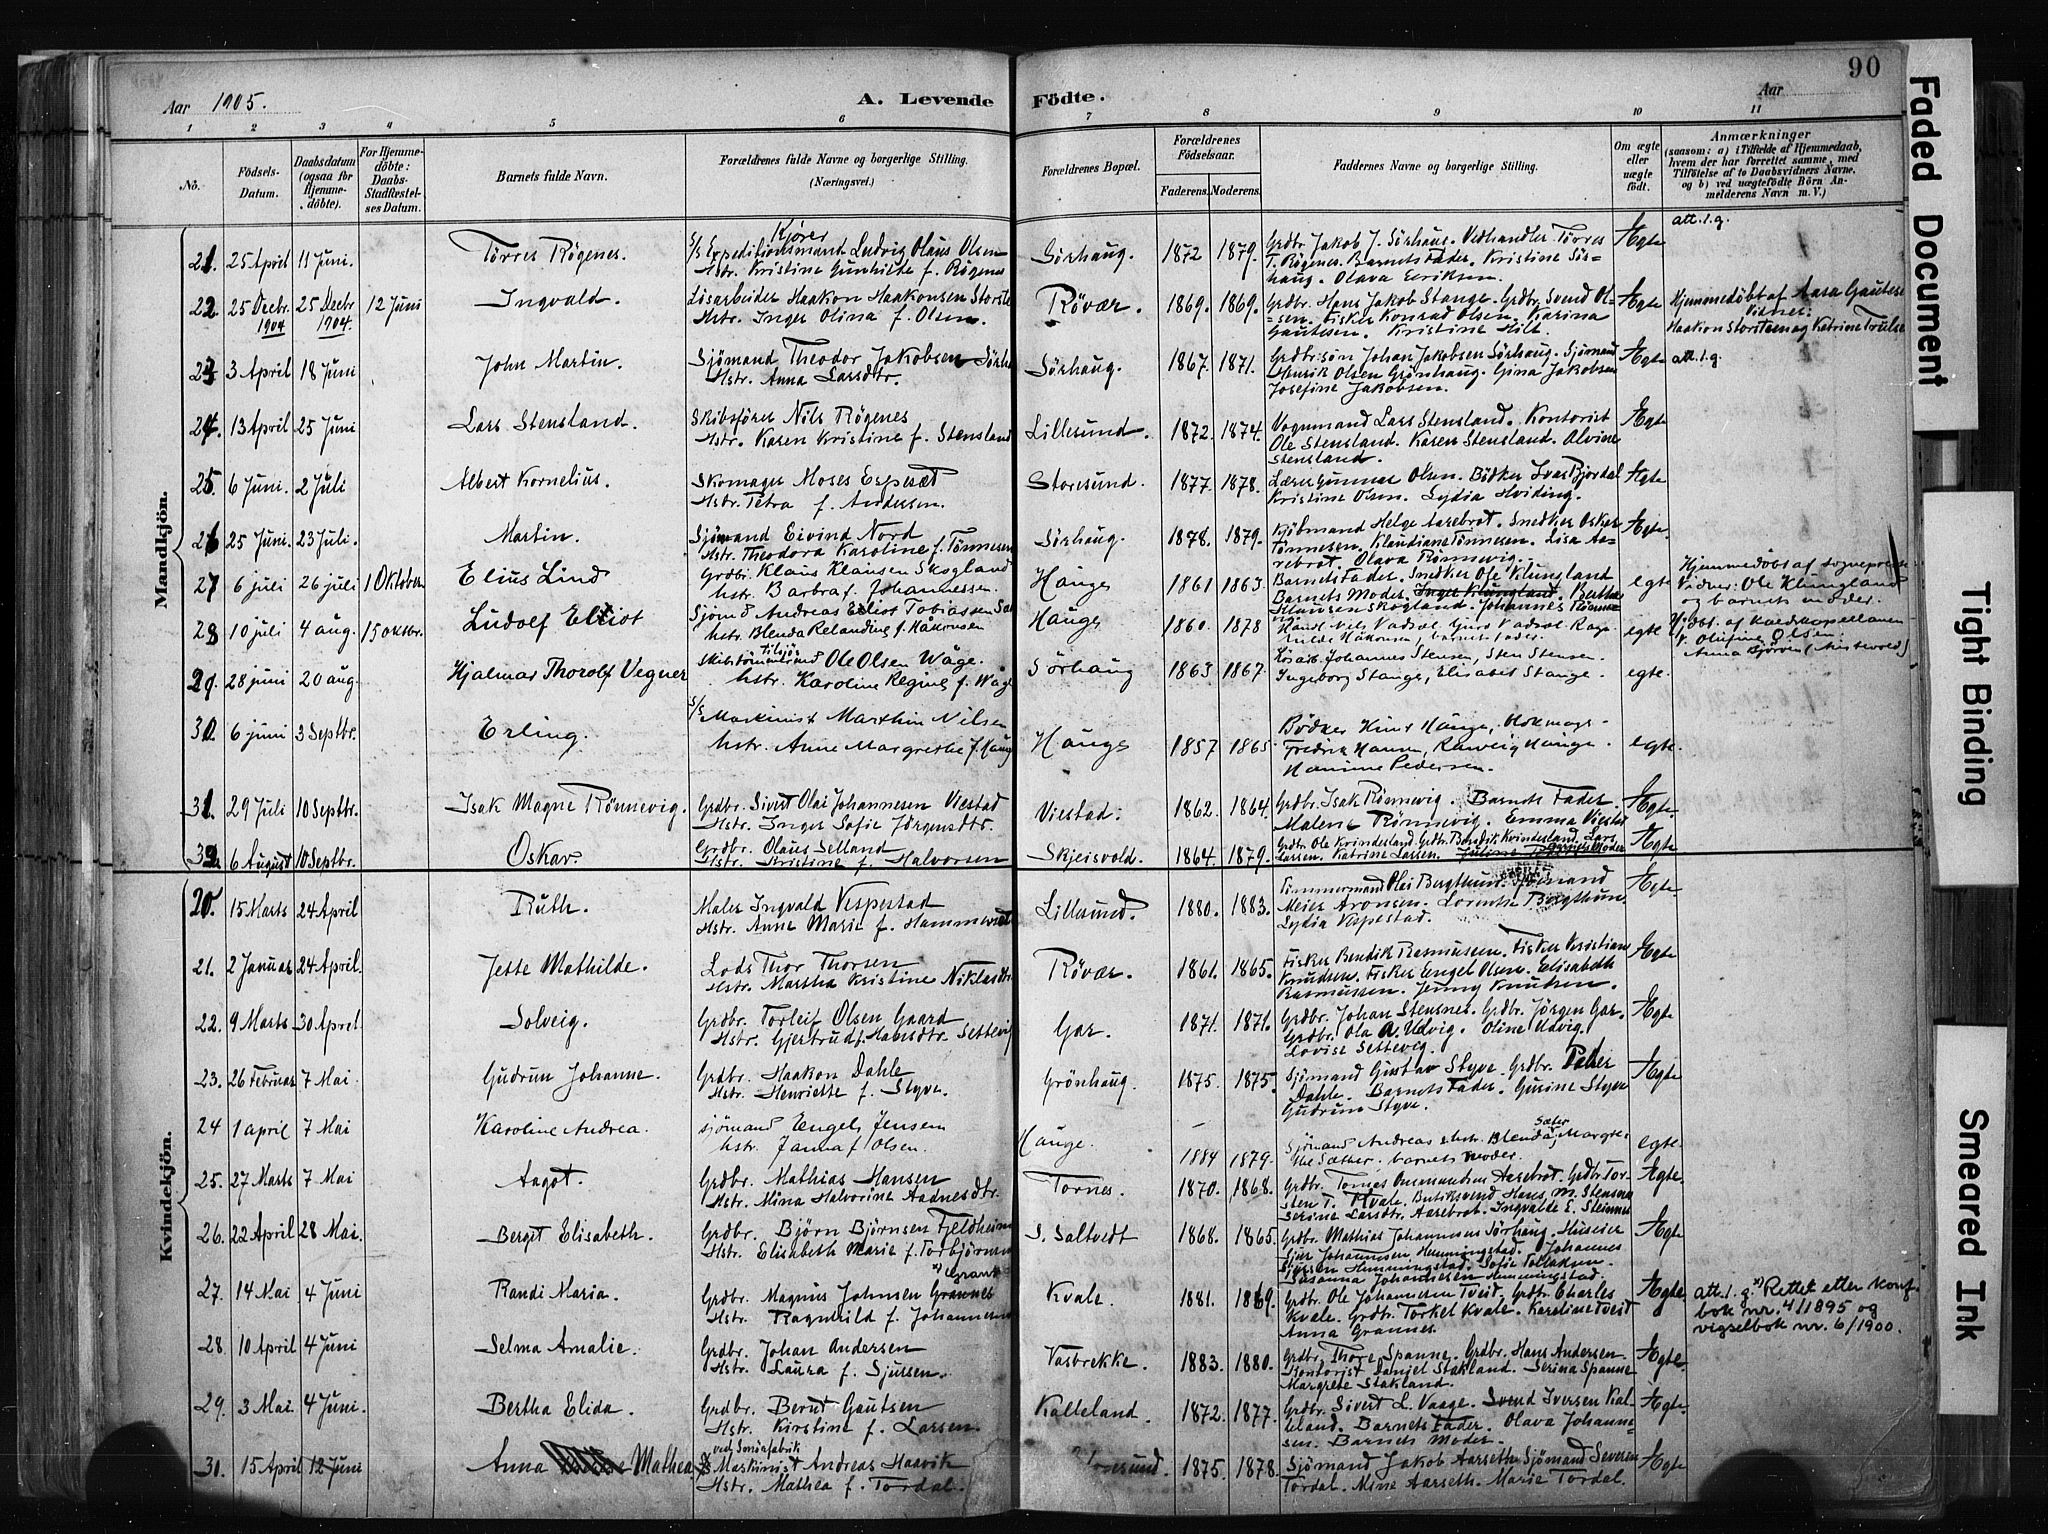 90
Aar 1905.
A. Levende Födte.
Aar
1 2 3 4 5 6 7 8 9 10 11
No.
Födsels-Datum.
Daabsdatum (ogsaa for Hjemme-döbte).
For Hjemme-döbte: Daabs-Stadfæstel-ses Datum.
Barnets fulde Navn.
Forældrenes fulde Navne og borgerlige Stilling. (Næringsvei.)
Forældrenes Bopæl.
Forældrenes Födselsaar.
Faderens. Moderens.
Faddernes Navne og borgerlige Stilling.
Om ægte eller uægte födt.
Anmærkninger
(saasom: a) i Tilfælde af Hjemmedaab, hvem der har forrettet samme, med Tilföielse af to Daabsvidners Navne, og b) ved uægtefödte Börn Anmelderens Navn m. V.)
Mandkjön.
21. 25 April 11 Juni. Tørres Røgenes. S/S Expeditionsmand Kjører Ludvig Olaus Olsen Hstr. Kristine Gunhilde f. Røgenes Sørhaug. 1872 1879. Grdbr Jakob J. Sørhaug. Vedhandler Tørres T. Røgenes. Barnets Fader. Kristine Sørhaug. Olava Eeriksen. Ægte att. l.g.
22. 25 Decbr. 1904 25 Decbr 1904. 12 Juni Ingvald. Løsarbeider Haakon Haakonsen Hstr. Inger Olina f. Olsen. Røvær. 1869. 1869. Grdbr. Hans Jakob Stange. Grdbr. Svend Olsen. Fisker Konrad Olsen. Karina Gautesen. Kristine Hilt. Ægte Hjemmedøbt af Aasa Gautesen Vidner: Haakon Storsteen og Katrine
23 3 April 18 Juni John Martin. Sjømand Theodor Jakobsen Hstr. Anna Larsdtr. Sørhaug. 1867. 1871. Grdbr.søn Johan Jakobsen Sørhaug. Sjømand Henrik Olsen Grønhaug. Gina Jakobsen Josefine Jakobsen. Ægte att. l.g.
24. 13 April 25 Juni Lars Stensland. Skibsfører Nils Røgenes Hstr. Karen Kristine f. Stensland Lillesund. 1872. 1874. Vognmand Lars Stensland. Kontorist Ole Stensland. Karen Stensland. Alvine Stensland. Ægte
25. 6 Juni. 2 Juli Albert Kornelius. Skomager Moses Espeset Hstr. Petra f. Andersen. Storesund. 1877. 1878. Lærer Gunnar Olsen. Bødker Ivar Bjordal Kristine Olsen. Lydia Hviding. Ægte
26 25 Juni. 23 Juli. Martin. Sjømand Eivind Nord Hstr. Theodora Karoline f. Tønnesen Sørhaug. 1878. 1879. Kjøbmand Helge Aarebrot. Snedker Oskar Tønnesen. Klaudiane Tønnesen. Lisa Aarebrot. Olava Rønnevig. Ægte.
27 6 juli 26 juli 1 Oktober Elius Lind Grdbr. Klaus Klausen Skogland hstr. Barbra f. Johannessen. Hauge 1861 1863. Barnets Fader. Snedker Ole Klungland Barnets Moder. Inger Klungland. Berthe Klausen Skogland. Johannes egte Hjemmedøbt af sognepresten Vidner: Ole Klungland og barnets moder.
28 10 juli 4 aug. 15 oktbr. Ludolf Elliot Sjømd Andreas Elliot Tobiassen hstr. Blenda Relandine f. Håkonsen Hauge 1860. 1878 egte Hjdbt. af kaldskapellanen V. Olufine Olsen. Anna Bjørven
29. 28 juni 20 aug. Hjalmar Thorolf Vegner Skibstømmermd Ole Olsen Wåge. hstr. Karoline Regine f. Wåge Sørhaug 1863 1867. Løsarb. Johannes Stensen, Sten Stensen. Ingeborg Stange, Elisabet Stange. egte.
30. 6 juni 3 Septbr. Erling. S/S Maskinist Marthin Nilsen hstr. Anne Margrethe f. Hauge Hauge 1857 1865. Bødker Knut Hauge, Fredrik Hansen, Ranveig Hauge. Hanine Pedersen. egte.
31. 29 Juli 10 Septbr. Isak Magne Rønnevig. Grdbr. Sivert Olai Johannesen Viestad Hstr. Inger Sofie Jørgensdtr. Viestad. 1862. 1864. Grdbr. Isak Rønnevig. Barnets Fader. Malene Rønnevig. Emma Viestad Ægte.
32 6 August 10 Septbr. Oskar. Grdbr. Olaus Selland Hstr. Kristine f. Halvorsen Skjeisvold. 1864. 1879. Grdbr. Ole Kvindesland. Grdbr. Benedik Kvindesland. Lars Larsen. Katrine Larsen. Ægte
Kvindekjön.
20. 15 Marts 24 April Ruth. Maler Ingvald Vespestad Hstr. Anne Marie f. Lillesund. 1880. 1883. Tømmermand Olai Bergthun. Sjømand Meier Aronsen. Lorentse Bergthun. Lydia Vespestad. Ægte.
21. 2 Januar 24 April. Jette Mathilde. Lods Thor Thorsen Hstr. Martha Kristine Niklasdtr. Røvær. 1861. 1865. Fisker Bendik Rasmussen. Fisker Kristian Knudsen. Fisker Engel Olsen. Elisabeth Rasmussen. Jenny Knudsen. Ægte
22. 9 Marts 30 April. Solveig. Grdbr. Torleif Olsen Gaard Hstr. Gjertrud f. Hansdtr. Settevig Gar. 1871. 1871. Grdbr. Johan Stensnes. Grdbr. Jørgen Gar. Grdbr. Ola A. Udvig. Oline Udvig. Lovise Settevig. Ægte
23. 26 Februar 7 Mai Gudrun Johanne. Grdbr. Haakon Dahle Hstr. Henriette f. Styve. Grönhaug. 1875. 1875. Sjømand Gustav Styve. Grdbr. Peder Dahle. Barnets Fader. Gurine Styve Gudrun Styve. Ægte
24 1 april 7 Mai Karoline Andrea. sjömand Engels Jensen hstr. Janna f Olsen. Hauge. 1884 1879. Sjømand Andreas Sæter, hstr. Blenda, Margrethe Sæther. barnets moder. egte.
25. 27 Marts 7 Mai Aagot. Grdbr. Mathias Hansen Hstr. Mina Halvorine Aadnesdtr. Tornes. 1870. 1868. Grdbr. Tornes Aarebrot. Grdbr. Torsten T. Kvale. Butiksvend Hans M. Stensnes Serine Larsdtr. Aarebrot. Ingvalde E. Steinnes Ægte.
26. 22 April 28 Mai. Berget Elisabeth. Grdbr. Bjørn Bjørnsen Fjeldheim Hstr. Elisabeth Marie f. Torbjørnsen S. Saltvedt 1868. 1865. Grdbr. Mathias Johannesen Sørhaug. Huseier Sjur Johannesen Hemmingstad. Johannes Sjursen Hemmingstad. Sofie Tollaksen. Susanna Johannesen Hemmingstad. Ægte
27. 14 Mai 4 Juni Randi Maria. Grdbr. Magnus Johnsen Grannes x) Hstr. Ragnhild f. Johannesen Kvale. 1881. 1869. Grdbr. Ole Johannesen Tveit. Grdbr. Charles Kvale. Grdbr. Torkel Kvale. Karoline Tveit Anna Grannes. Ægte. att. l. g. x) Rettet etter konf. bok nr. 4/1895 og vigselbok nr. 6/1900.
28. 10 April 4 Juni Selma Amalie. Grdbr. Johan Andersen Hstr. Laura f. Sjursen. Vasbrekke. 1883. 1880. Grdbr. Thore Spanne. Grdbr. Hans Andersen Kontorist Daniel Stakland. Serina Spanne Margrete Stakland. Ægte.
29. 3 Mai. 4 Juni. Bertha Elida. Grdbr. Bernt Gautsen Hstr. Kirstine f. Larsen. Kalleland. 1872. 1877. Grdbr. Sivert L. Vaage. Svend Iversen Kalleland. Barnets Fader. Olava Johannesen. Barnets Moder. Ægte.
30. 15 April 12 Juni Anna Mathea ved Smörfabrik Maskinist Andreas Haavik Hstr. Mathea f. Tordal. Storesund. 1875. 1878. Sjömand Jakob Aarseth. Sjömand Severin Tordal. Mine Aarseth. Marie Tordal. Ægte
Faded Document
Tight Binding
Smeared Ink